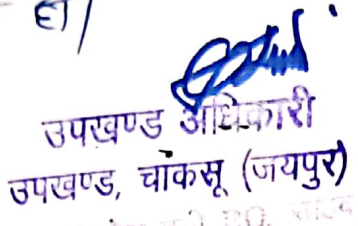 है।
उपखण्ड अधिकारी
उपखण्ड, चाकसू (जयपुर)